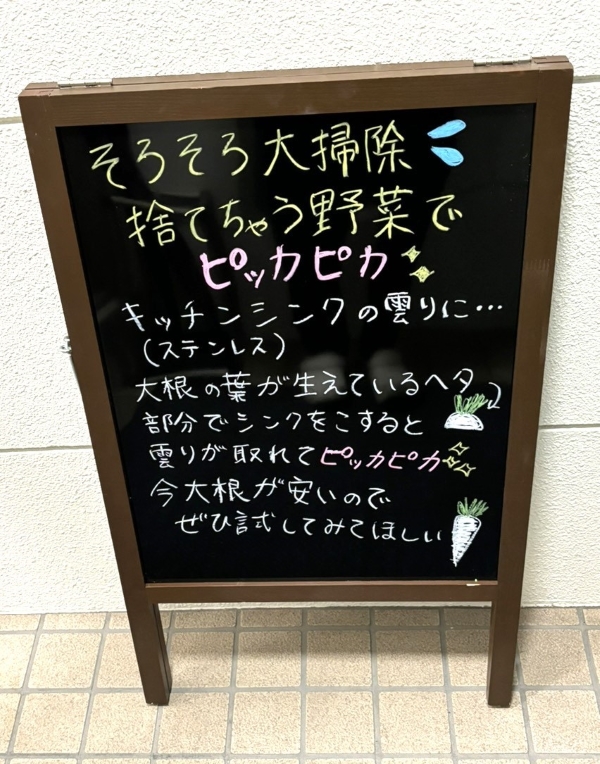 そろそろ大掃除
捨てちゃう野菜で
ピッカピカ
キッチンシンクの雲りに…
(ステンレス)
大根の葉が生えているヘタ
部分でシンクをこすると
雲りが取れてピッカピカ
今大根が安いので
ぜひ試してみてほしい